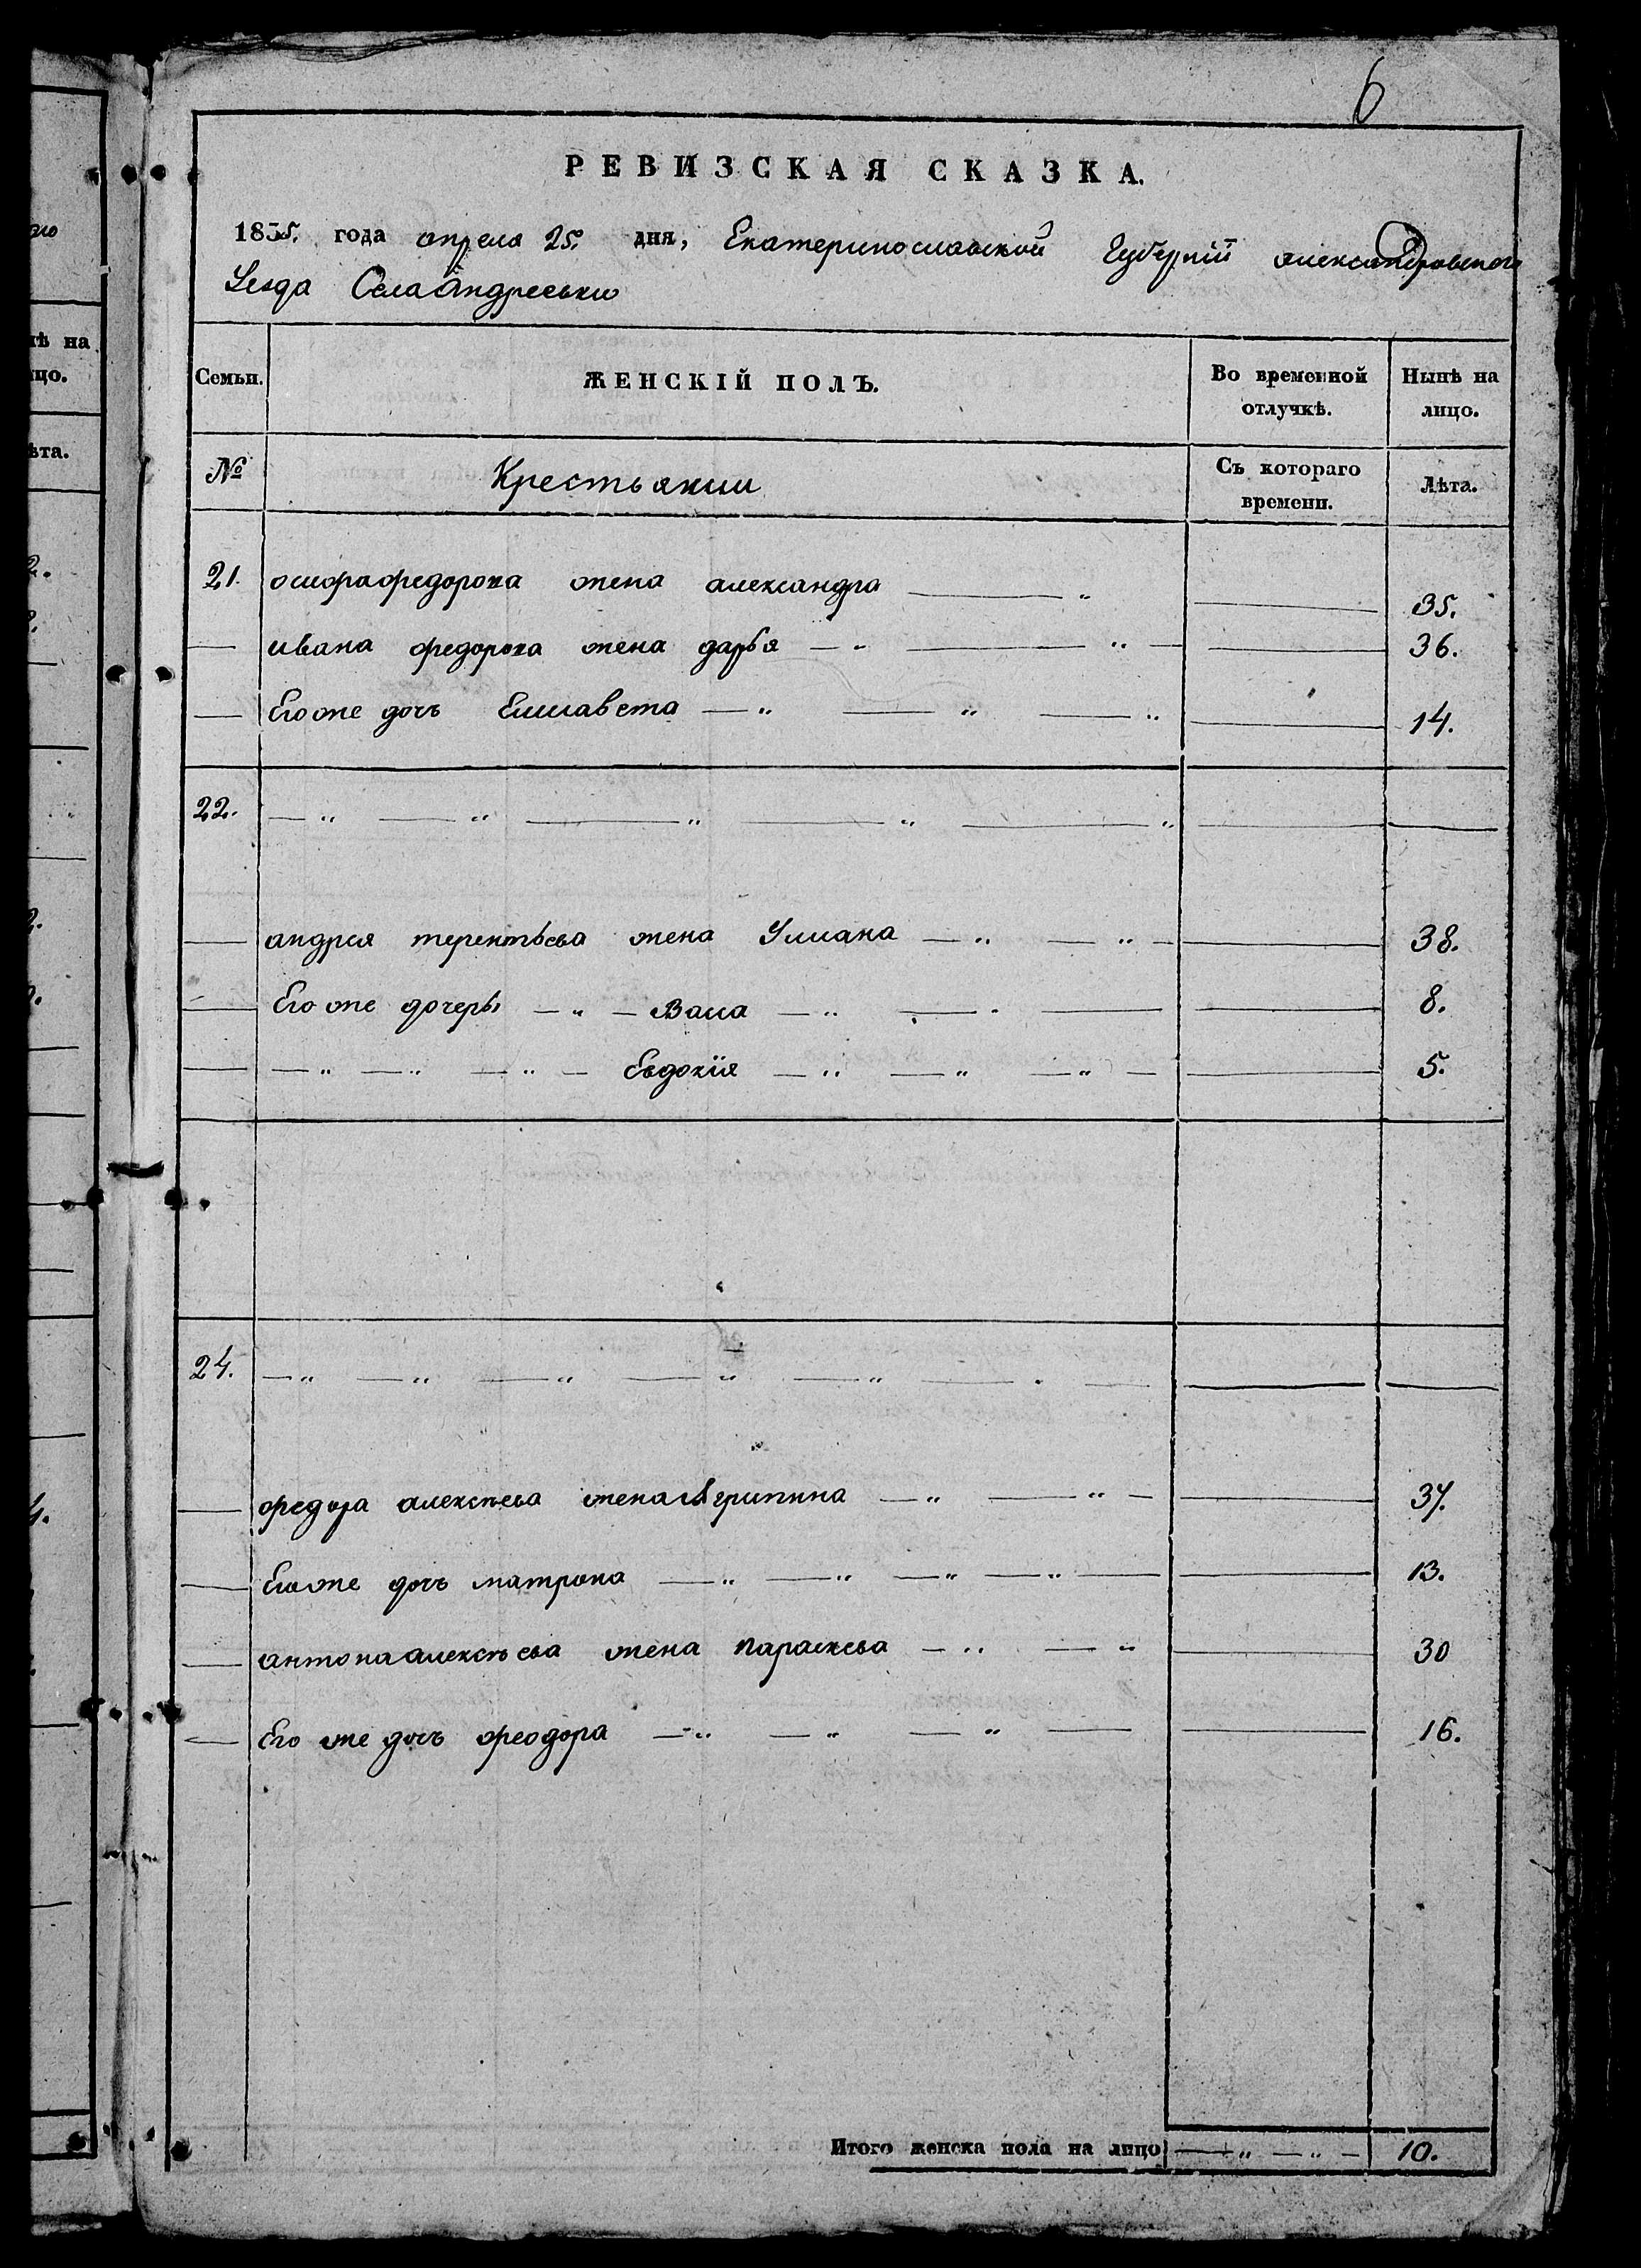 6
РЕВИЗСКАЯ СКАЗКА.
1835. года апреля 25. дня, Екатеринославской Губерніи александровского
Уезда Села андреевки
Семьи. ЖЕНСКІЙ ПОЛЪ. Во временной отлучкѣ. Нынѣ на лицо.
№ Крестьянки Съ котораго времени. Лѣта.
21. федорова жена александра — " 35.
— ивана федорова жена дарья — " — " — 36.
— Егоже дочь Елисавета — " — " — " 14.
22. — " — " — " — " — "
— андрея терентьева жена Улиана — " — " — 38.
— Его же дочеры — " — Васса — " — " — 8.
— — " — " — " — Евдокія — " — " — " — 5.
24. — " — " — " — " — " — " —
— федора алексеева жена Агрипина — " — " — 37.
— Егоже дочь матрона — " — " — " — " — 13.
— антона алексеева жена Параскева — " — " 30
— Его же дочь феодора — " — " — " — 16.
Итого женска пола на лицо — " — " — 10.
нѣ на
цо.
ѣта.